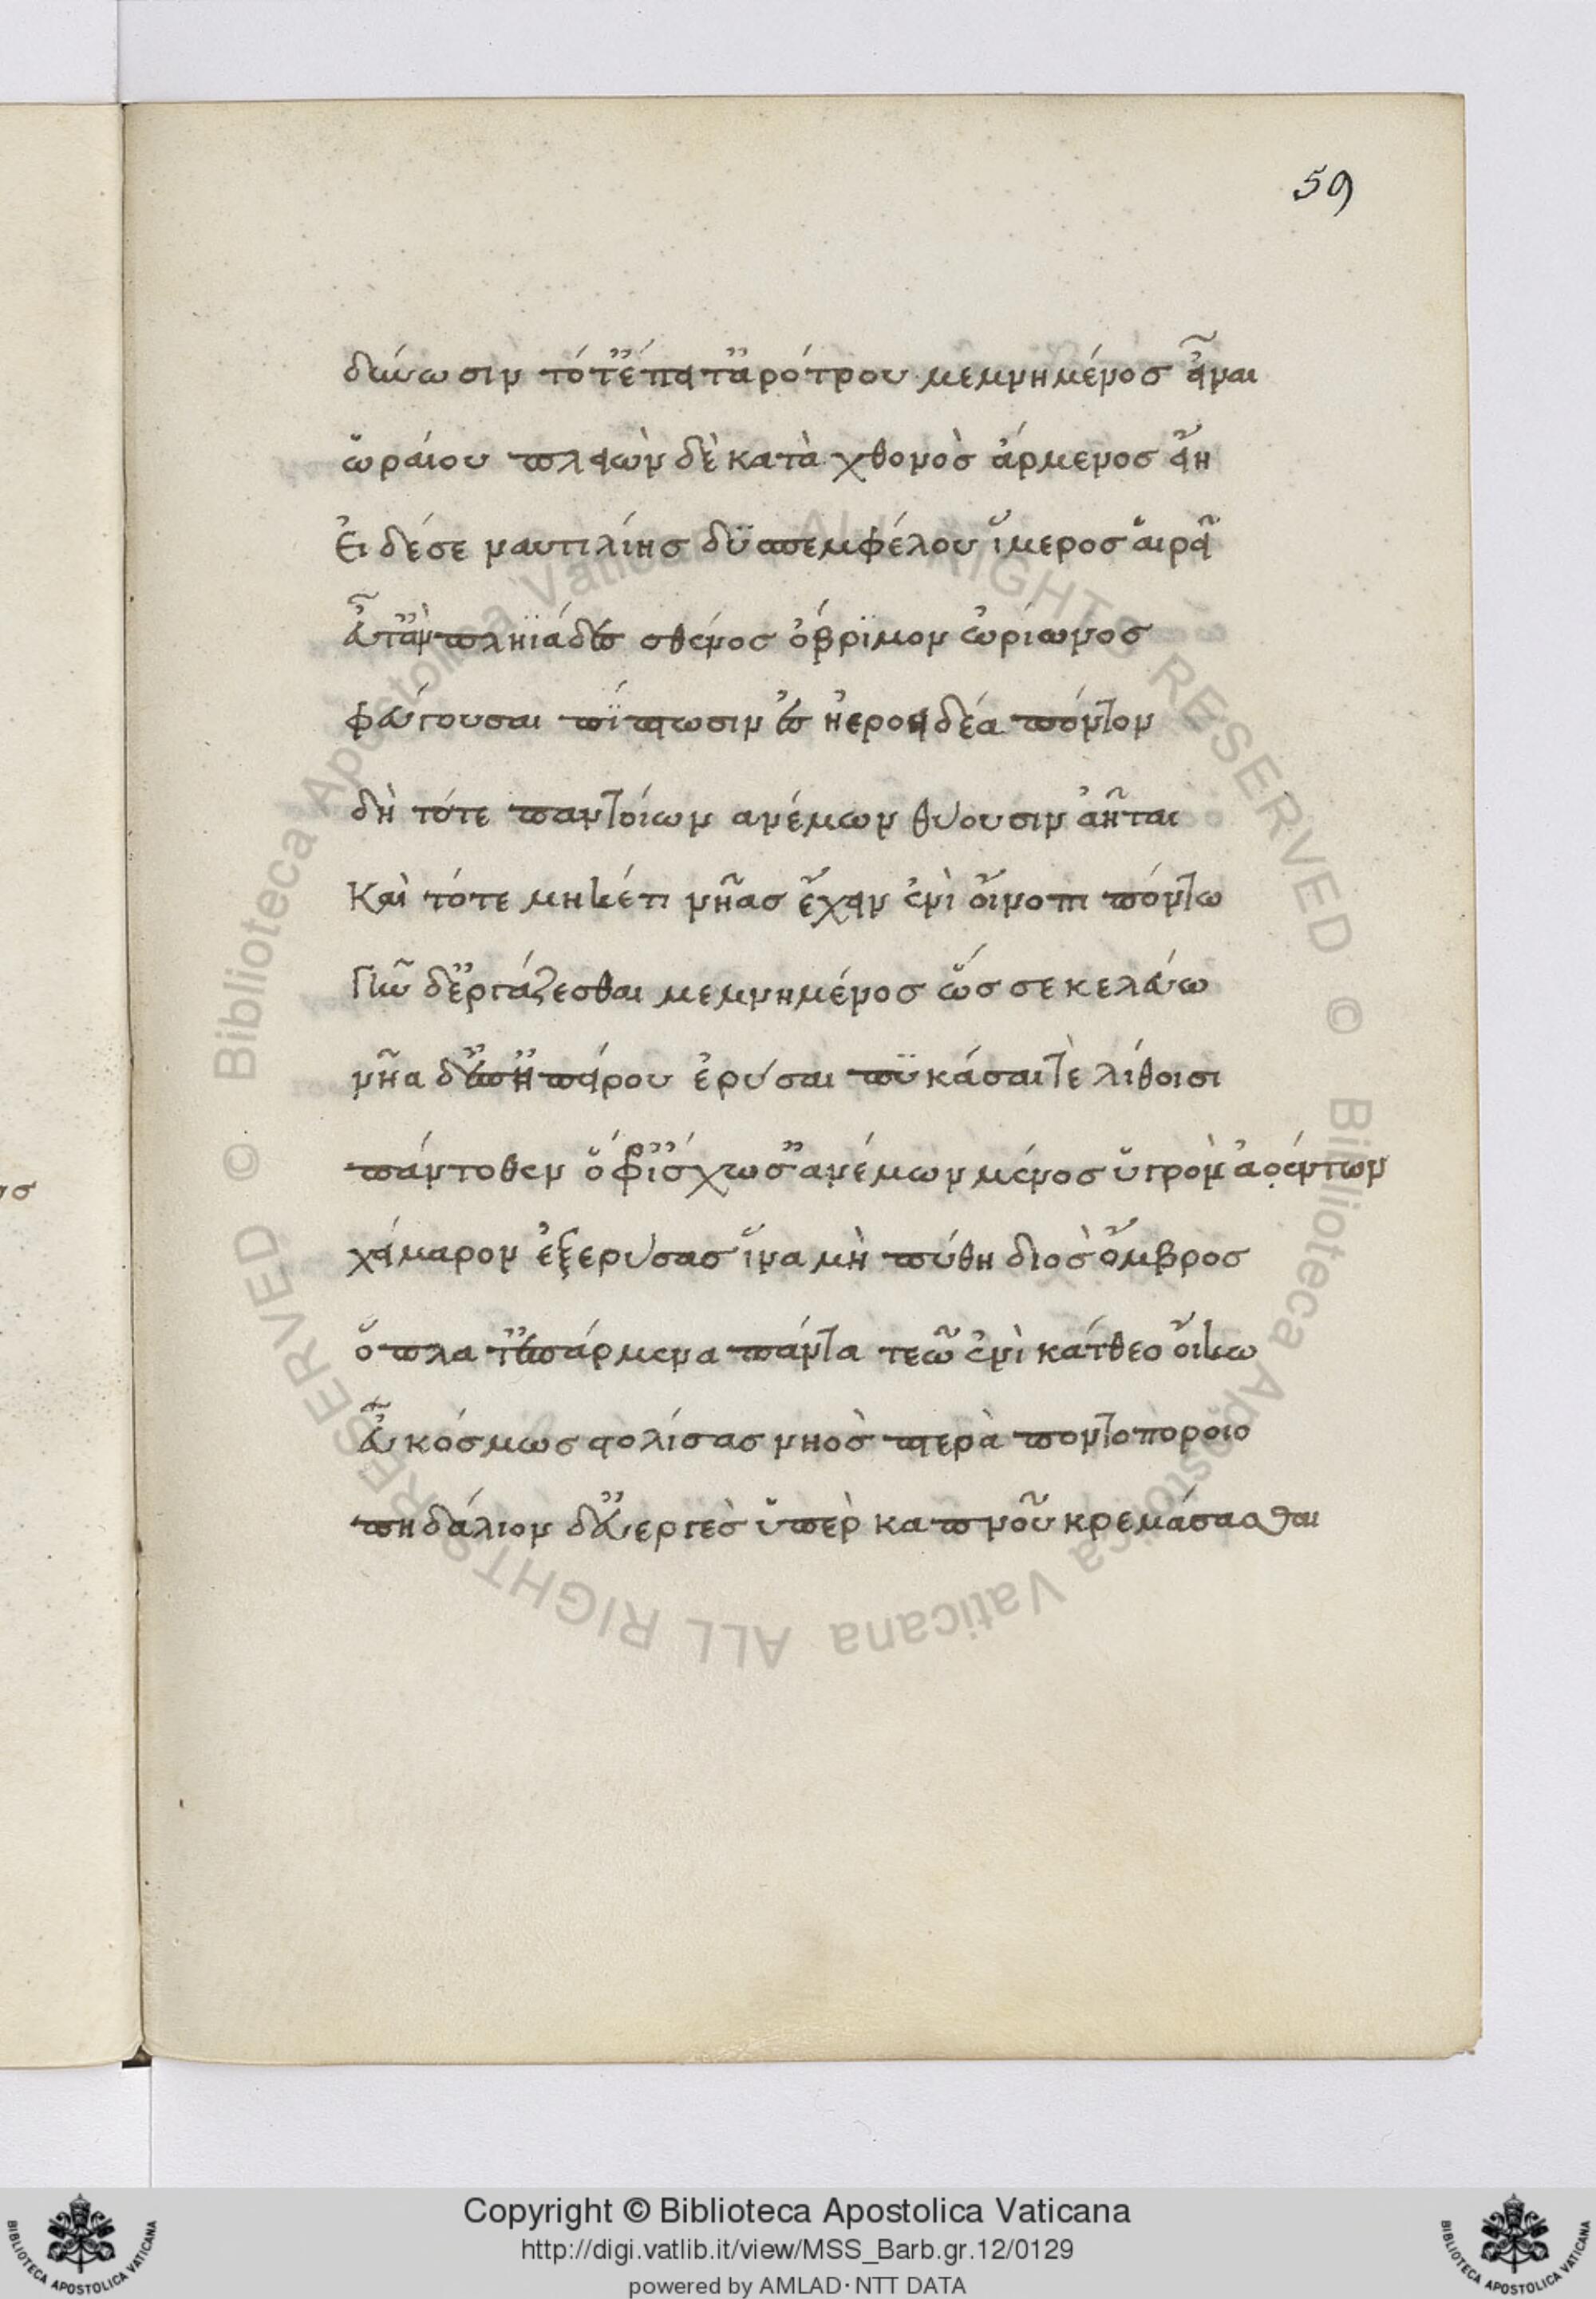 59
δύνωσιν τότ' ἔπειτ' ἀρότρου μεμνημένος εἶναι
ὡραίου πλειὼν δὲ κατὰ χθονὸς ἄρμενος εἴη
Εἰ δέ σε ναυτιλίης δυσπεμφέλου ἵμερος αἱρεῖ
Εὖτ' ἂν πληϊάδες σθένος ὄβριμον ὠρίωνος
φεύγουσαι πίπτωσιν ἐς ἠεροειδέα πόντον
δὴ τότε παντοίων ανέμων θύουσιν ἀῆται
Καὶ τότε μηκέτι νῆας ἔχειν ἐνὶ οἴνοπι πόντω
Γῆν δ' ἐργάζεσθαι μεμνημένος ὥς σε κελεύω
νῆα δ' ἐπ' ἠπείρου ἐρύσαι πυκάσαι τὲ λίθοισι
πάντοθεν ὄφρ' ἴσχωσ' ἀνέμων μένος ὑγρὸν ἀέντων
χείμαρον ἐξερύσας ἵνα μὴ πύθη διὸς ὄμβρος
ὅπλα τ' ἐπάρμενα πάντα τεῶ ἐνὶ κάτθεο οἴκω
Εὐκόσμως στολίσας νηὸς πτερὰ ποντοπόροιο
πηδάλιον δ' εὐεργὲς ὑπὲρ καπνοῦ κρεμάσασθαι
νσ
© Biblioteca Apostolica Vaticana ALL RIGHTS RESERVED © Biblioteca Apostolica Vaticana ALL RIGHTS RESERVED
Copyright © Biblioteca Apostolica Vaticana
http://digi.vatlib.it/view/MSS_Barb.gr.12/0129
powered by AMLAD·NTT DATA
BIBLIOTECA APOSTOLICA VATICANA
BIBLIOTECA APOSTOLICA VATICANA